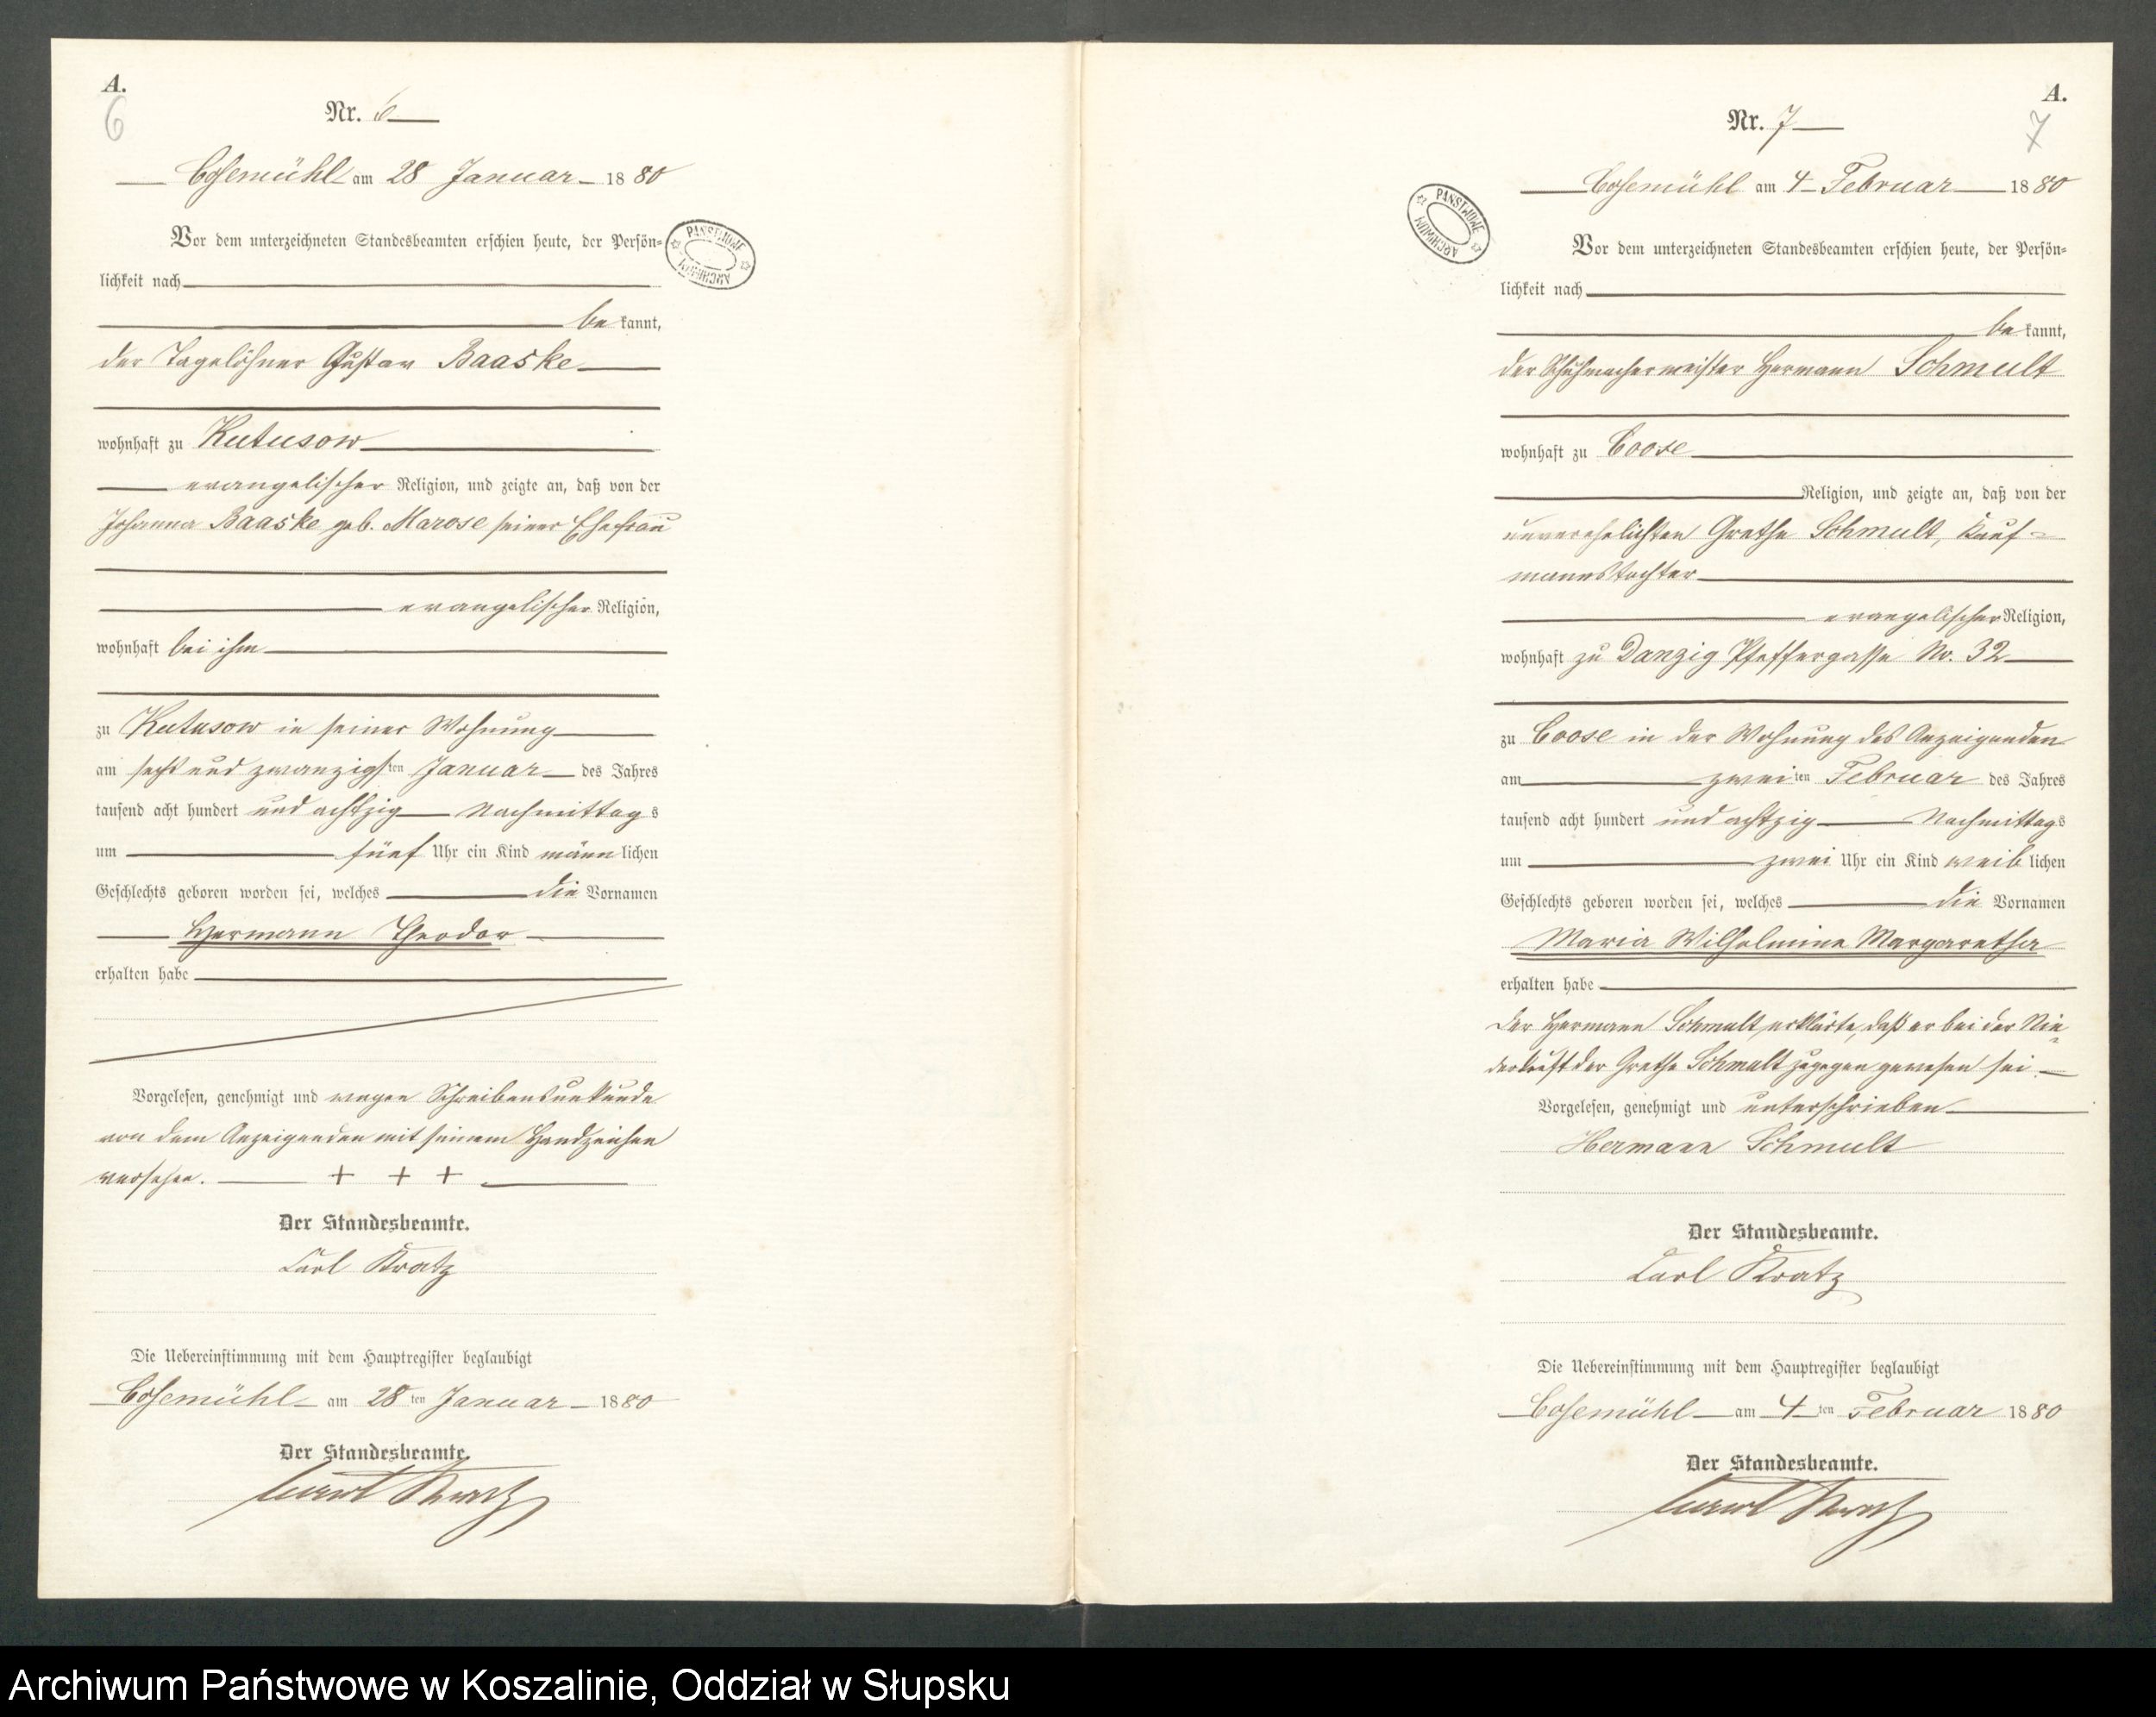 A.
6
Nr. 6
Cosemühl am 28 Januar 1880
Vor dem unterzeichneten Standesbeamten erschien heute, der Persön=
lichkeit nach
be kannt,
der Tagelöhner Gustav Baaske
wohnhaft zu Kutusow
evangelischer Religion, und zeigte an, daß von der
Johanna Baaske geb. Marose seiner Ehefrau
evangelischer Religion,
wohnhaft bei ihm
zu Kutusow in seiner Wohnung
am sechs und zwanzigsten Januar des Jahres
tausend acht hundert und achtzig Nachmittags
um fünf Uhr ein Kind männlichen
Geschlechts geboren worden sei, welches die Vornamen
Hermann Theodor
erhalten habe
Vorgelesen, genehmigt und wegen Schreibensunkunde
von dem Anzeigenden mit seinem Handzeichen
versehen. + + +
Der Standesbeamte.
Carl Kratz
Die Uebereinstimmung mit dem Hauptregister beglaubigt
Cosemühl am 28ten Januar 1880
Der Standesbeamte.
Carl Kratz
PAŃSTWOWE ARCHIWUM
A.
7
Nr. 7
Cosemühl am 4 Februar 1880
Vor dem unterzeichneten Standesbeamten erschien heute, der Persön=
lichkeit nach
be kannt,
der Schuhmachermeister Hermann Schmult
wohnhaft zu Coose
Religion, und zeigte an, daß von der
unverehelichten Grethe Schmult, Kauf=
mannstochter
evangelischer Religion,
wohnhaft zu Danzig Pfeffergasse No. 32
zu Coose in der Wohnung des Anzeigenden
am zweiten Februar des Jahres
tausend acht hundert und achtzig Nachmittags
um zwei Uhr ein Kind weiblichen
Geschlechts geboren worden sei, welches die Vornamen
Maria Wilhelmine Margaretha
erhalten habe
Der Hermann Schmult erklärte, daß er bei der Nie=
derkunft der Grethe Schmult zugegen gewesen sei
Vorgelesen, genehmigt und unterschrieben
Hermann Schmult
Der Standesbeamte.
Carl Kratz
Die Uebereinstimmung mit dem Hauptregister beglaubigt
Cosemühl am 4ten Februar 1880
Der Standesbeamte.
Carl Kratz
PAŃSTWOWE ARCHIWUM
Archiwum Państwowe w Koszalinie, Oddział w Słupsku